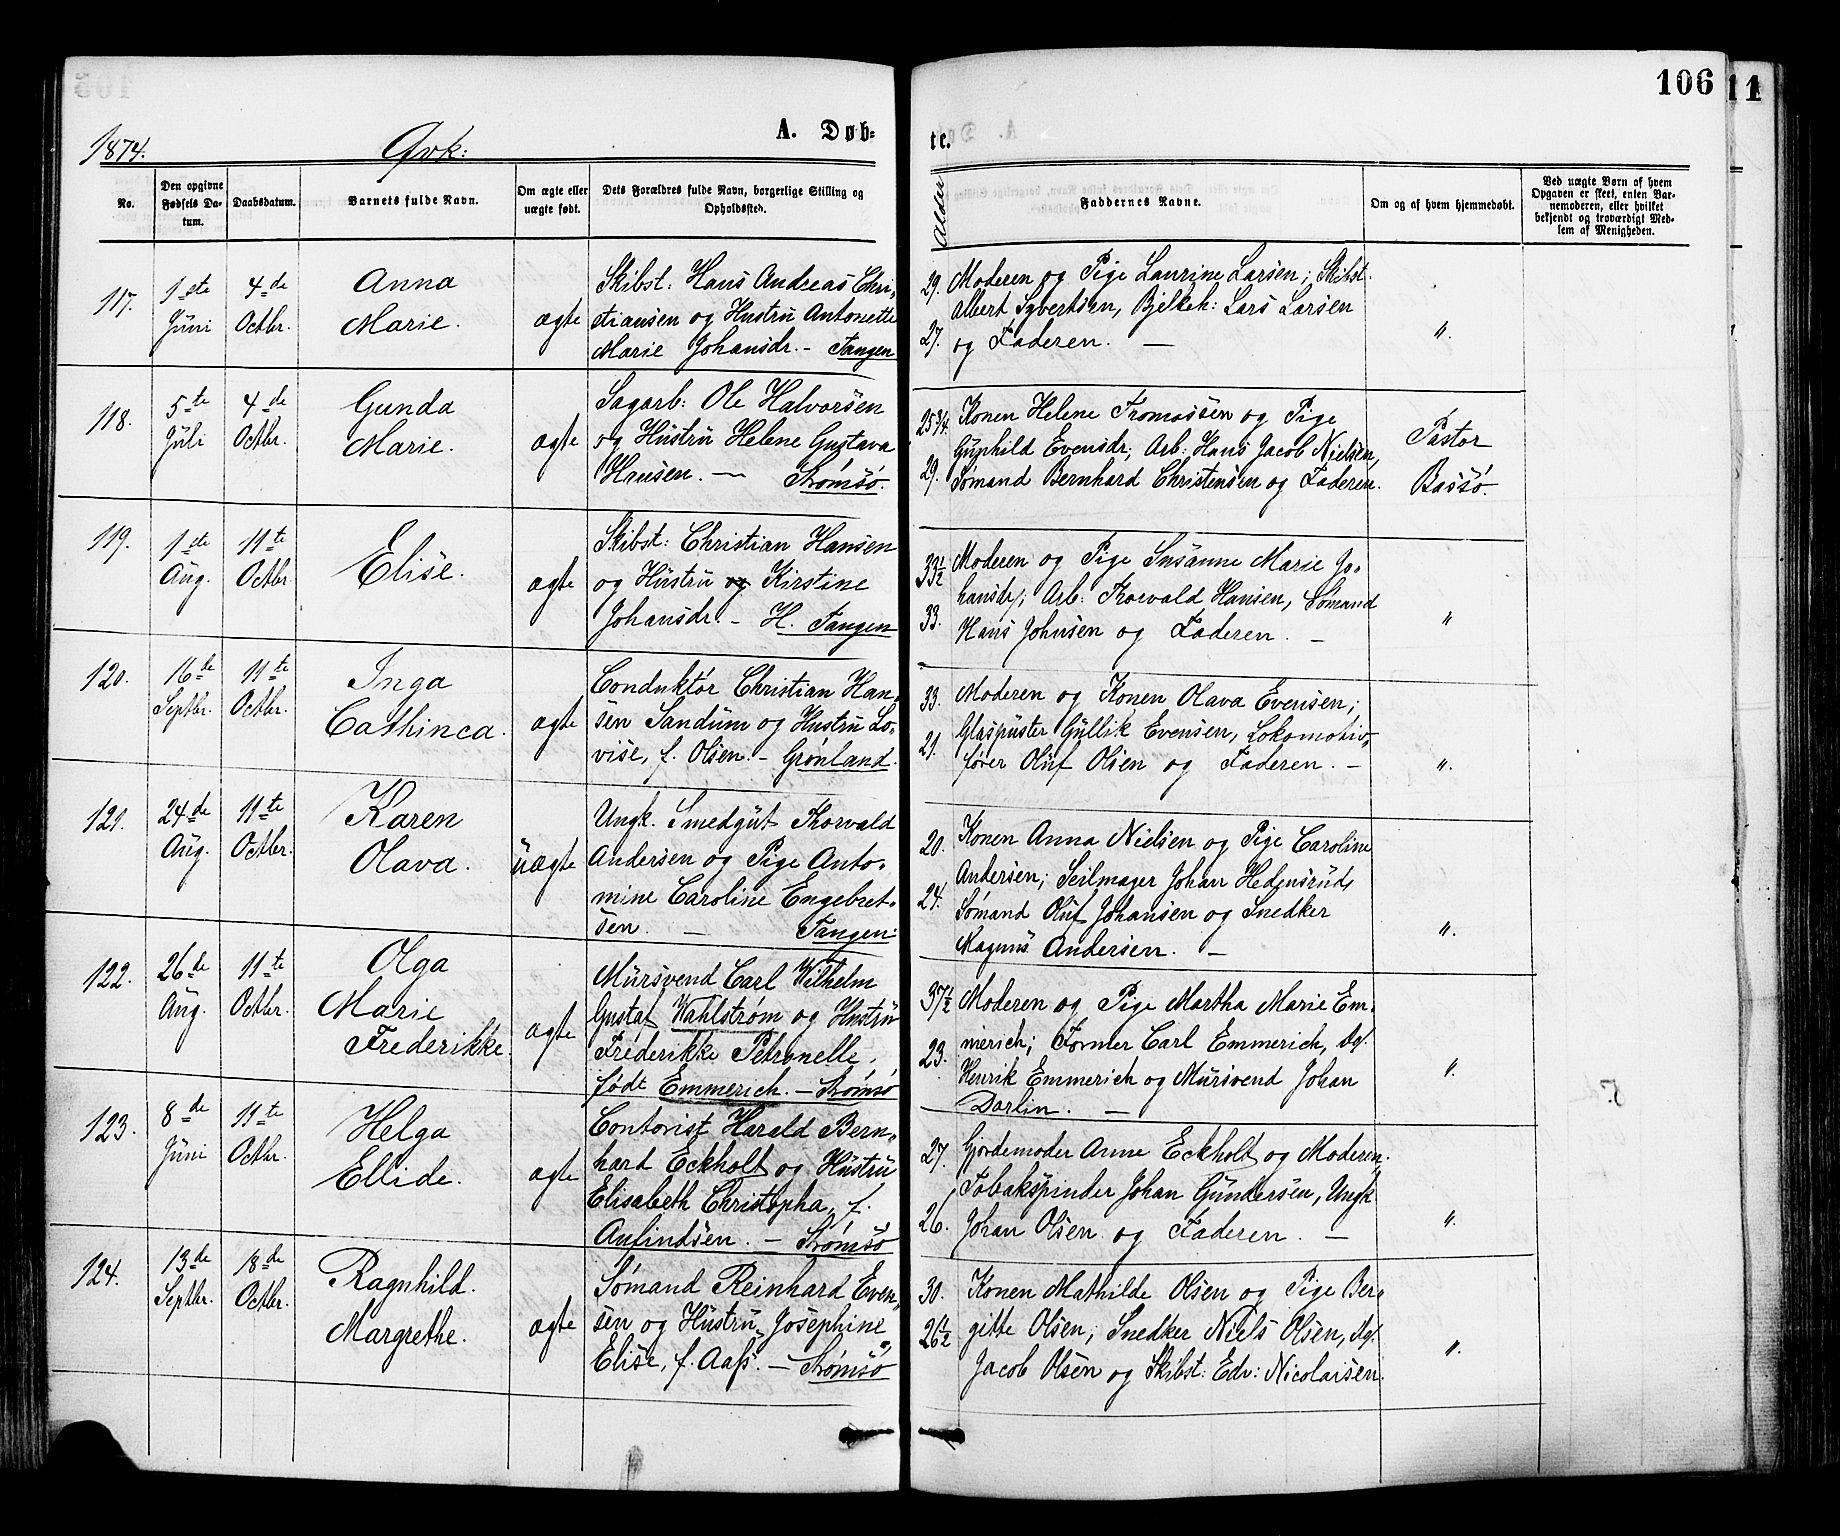 106
11
1874. Qvk:
A. Døb-
te.
No.
Den opgivne Fødsels Da-
tum.
Daabsdatum.
Barnets fulde Navn.
Om ægte eller
uægte født.
Dets Forældres fulde Navn, borgerlige Stilling og
Opholdssted.
Alder
Faddernes Navne.
Om og af hvem hjemmedøbt.
Ved uægte Børn af hvem
Opgaven er skeet, enten Bar-
nemoderen, eller hvilket
bekjendt og troværdigt Med-
lem af Menigheden.
117.
1ste
Juni
4de
Octbr.
Anna
Marie.
ægte
Skibst: Hans Andreas Chri-
stiansen og Hustru Antonette
Marie Johansdr. - Tangen
29.
27.
Moderen og Pige Laurine Larsen; Skibst.
Albert Syvertsen, Bjelkeh: Lars Larsen
og Faderen. —
"
118.
5te
Juli
4de
Octbr.
Gunda
Marie.
ægte
Sagarb: Ole Halvorsen
og Hustru Helene Gustava
Hansen. — Strømsø.
25 3/4.
29.
Konen Helene Tromassen og Pige
Gunhild Evensdr; Arb: Hans Jacob Nielsen,
Sømand Bernhard Christensen og Faderen.
Pastor
Bassø.
119.
1ste
Aug.
11te
Octbr.
Elise.
ægte
Skibst: Christian Hansen
og Hustru og Kirstine
Johansdr. - H. Tangen
33 1/2
33.
Moderen og Pige Susanne Marie Jo-
hansdr; Arb: Thorvald Hansen, Sømand
Hans Johnsen og Faderen. —
"
120.
16de
Septbr.
11te
Octbr.
Inga
Cathinca.
ægte
Conduktør Christian Han-
sen Sandum og Hustru Lo-
vise, f. Olsen. - Grønland.
33.
21.
Moderen og Konen Olava Evensen;
Glaspuster Gullik Evensen, Lokomotiv-
fører Oluf Olsen og Faderen. —
"
121.
24de
Aug.
11te
Octbr.
Karen
Olava.
uægte
Ungk. Smedgut Thorvald
Andersen og Pige Anto-
mine Caroline Engebret-
sen. — Tangen.
20.
24.
Konen Anna Nielsen og Pige Caroline
Andersen; Seilmager Johan Hedensrud,
Sømand Oluf Johansen og Snedker
Magnus Andersen. —
"
122.
26de
Aug.
11te
Octbr.
Olga
Marie
Frederikke.
ægte
Mursvend Carl Wilhelm
Gustaf Wahlstrøm og Hustru
Frederikke Petronelle,
født Emmerich. — Strømsø
37 1/2
23.
Moderen og Pige Martha Marie Em-
merich; Former Carl Emmerich, do.
Henrik Emmerich og Mursvend Johan
Darlin. —
"
123.
8de
Juni
11te
Octbr.
Helga
Ellide.
ægte
Contorist Harald Bern-
hard Eckholt og Hustru
Elisabeth Christopha, f.
Anfindsen. — Strømsø
27.
26.
Gjordemoder Anne Eckholt og Moderen;
Tobakspinder Johan Gundersen, Ungk
Johan Olsen og Faderen. —
"
124.
13de
Septbr.
18de
Octbr.
Ragnhild.
Margrethe.
ægte
Sømand Reinhard Even-
sen og Hustru Josephine
Elise, f. Aas. — Strømsø
30.
26 1/2
Konen Mathilde Olsen og Pige Ber-
gitte Olsen; Snedker Niels Olsen, do.
Jacob Olsen og Skibst: Edv: Nicolaisen.
"